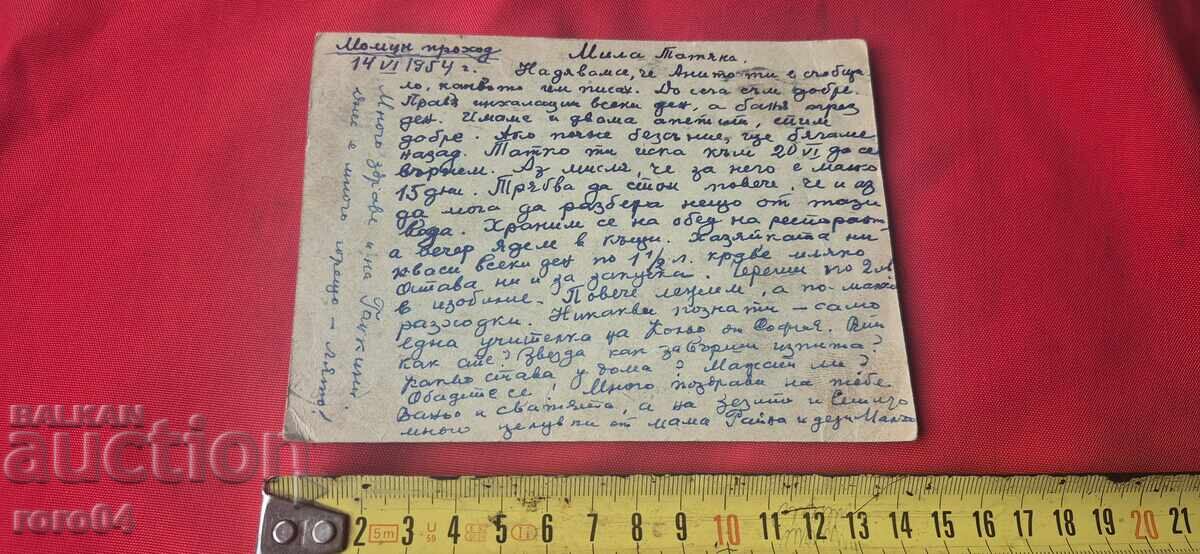 Момин проход
14 VI 1954 г.
Мила Татяна.
Надявамсе, че Анито ти е съобщи-
ло, каквото им писах. До сега сме добре.
Правя инхалации всеки ден, а баня през
ден. Имаме и двама апетит, спим
добре. Ако почне безсъние, ще бягаме
назад. Татко ти иска към 20 VI да се
върнем. Аз мисля, че за него е малко
15 дни. Трябва да стои повече, че и аз
да мога да разбера нещо от тази
вода. Храним се на обед на ресторант
а вечер ядем в къщи. Хазяйката ни
кваси всеки ден по 1 1/2 л. краве мляко
Остава ни и за закуска. Череши по 2 лв
в изобилие. Повече лежем, а по-малко
разходки. Никакви познати - само
една учителка на от София. Вий
как сте? Звезда как завърши изпита?
Какво става у дома? Мажат ли?
Обадете се! Много поздрави на тебе
Ваньо и сватята, а на зетто и
много целувки от мама Райна и
Много здраве и на Ганкини
Днес е много горещо - лято!
BALKAN
auction
roro64
2 5m 3 U 59 4 5 6 7 8 9 10 11 12 13 14 15 16 17 18 19 20 21